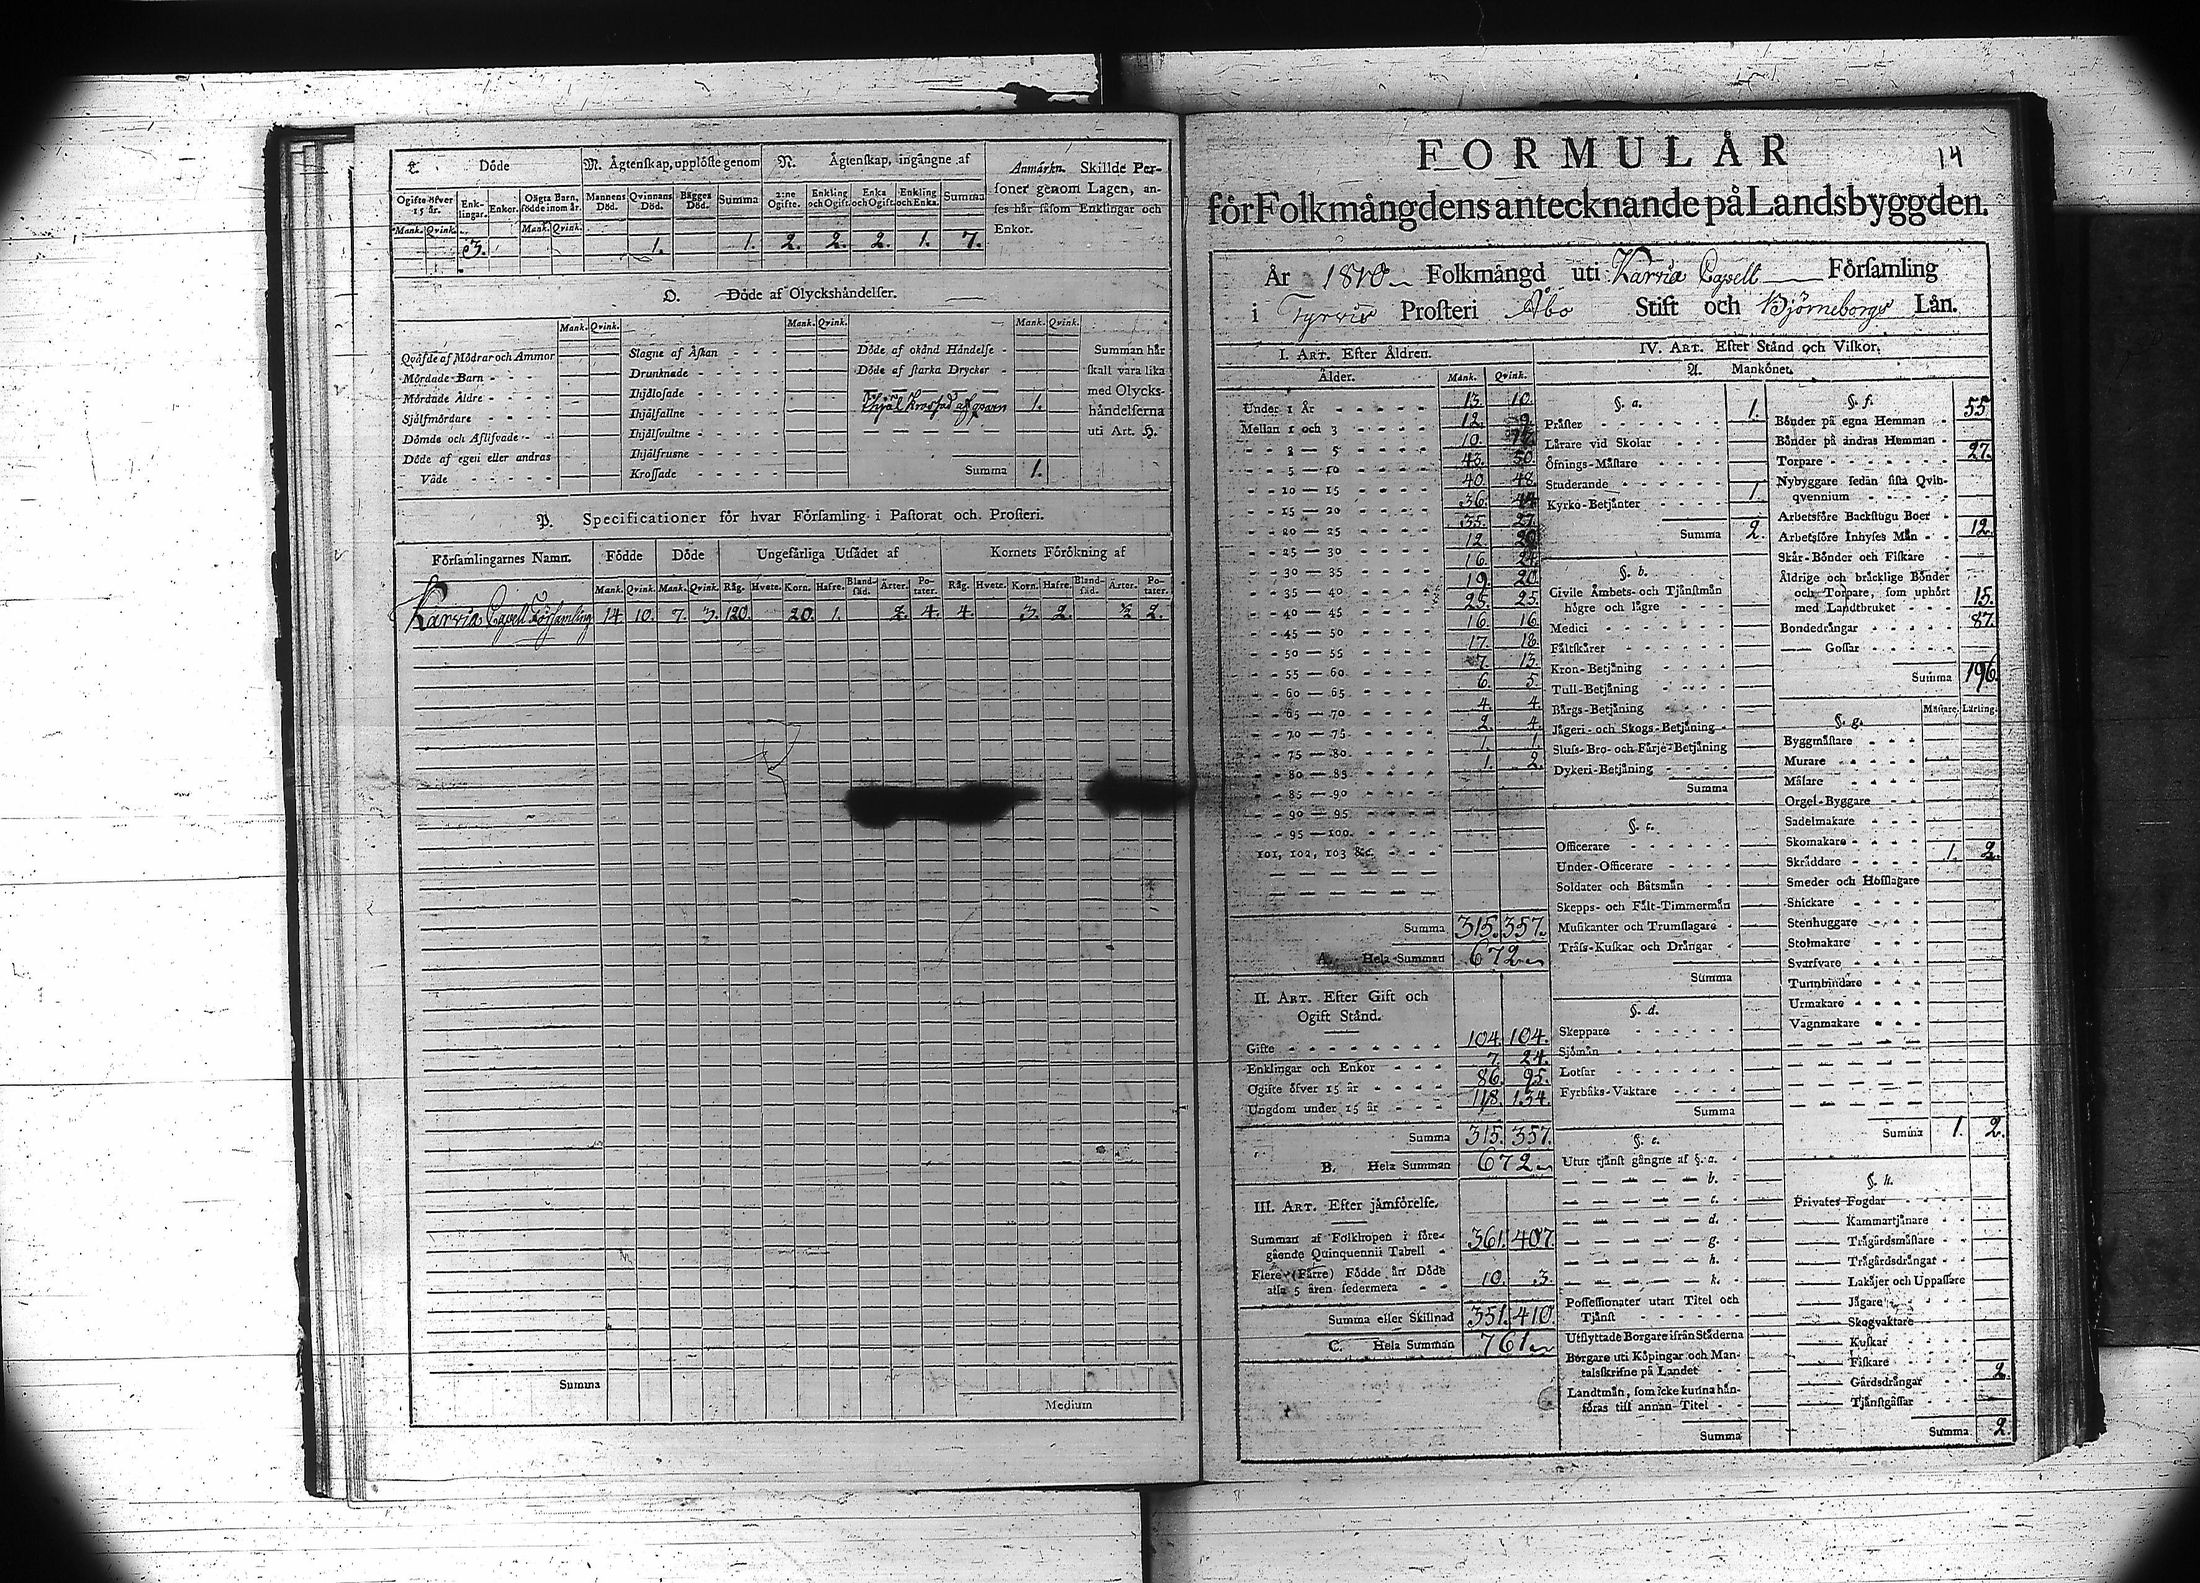 L. Döde
M. Ågtenskap, upplöste genom
N. Ågtenskap, ingångne af
Ogifte öfver 15 år.
Enk-lingar.
Enkor.
Oågta Barn, födde inom år.
Mannens Död.
Qvinnans Död.
Bågges Död.
Summa
2:ne Ogifte.
Enkling och Ogift.
Enka och Ogift.
Enkling och Enka.
Summa
Mank. Qvink. Mank. Qvink.
3. 1. 1. 2. 2. 2. 1. 7.
Anmårkn. Skillde Per-
soner genom Lagen, an-
ses hår såsom Enklingar och
Enkor.
O. Döde af Olyckshåndelser.
Mank. Qvink. Mank. Qvink. Mank. Qvink.
Qvåfde af Mödrar och Ammor
Mördade Barn
Mördade Åldre
Sjålfmördare
Dömde och Aflifvade
Döde af egen eller andras
Våde
Slagne af Åskan
Drunknade
Ihjålosade
Ihjålfallne
Ihjålsvultne
Ihjålfrusne
Krossade
Döde af okånd Håndelse
Döde af starka Drycker
Ihjäl krossad af qvarn 1.
Summa 1.
Summan hår
skall vara lika
med Olycks-
håndelserna
uti Art. H.
P. Specificationer för hvar Församling i Pastorat och Prosteri.
Församlingarnes Namn.
Födde
Döde
Ungefårliga Utsådet af
Kornets Förökning af
Mank. Qvink. Mank. Qvink. Råg. Hvete. Korn. Hafre. Bland-såd. Årter. Po-tater. Råg. Hvete. Korn. Hafre. Bland-såd. Årter. Po-tater.
Karvia Capell Församling 14. 10. 7. 3. 120. 20. 1. 2. 4. 4. 3. 2. 2.
Summa
Medium
FORMULÅR
14
för Folkmångdens antecknande på Landsbyggden.
År 1810 Folkmångd uti Karvia Capell Församling
i Tyrvis Prosteri Åbo Stift och Björneborgs Lån.
I. ART. Efter Åldren.
Ålder. Mank. Qvink.
Under 1 År 13. 10.
Mellan 1 och 3 12. 9.
3 — 5 10.
5 — 10 43. 50
10 — 15 40. 48.
15 — 20 36. 44
20 — 25 35. 27.
25 — 30 12. 20
30 — 35 16. 24.
35 — 40 19. 20
40 — 45 25. 25.
45 — 50 16. 16
50 — 55 17. 18.
55 — 60 7. 13.
60 — 65 6. 5.
65 — 70 4. 4.
70 — 75 2. 4.
75 — 80 1. 1.
80 — 85 1. 2.
85 — 90
90 — 95
95 — 100.
101, 102, 103 &c.
Summa 315. 357.
A. Hela Summan 672
II. ART. Efter Gift och
Ogift Stånd.
Gifte 104. 104.
Enklingar och Enkor 7. 24.
Ogifte öfver 15 år 86. 95.
Ungdom under 15 år 118. 134.
Summa 315. 357.
B. Hela Summan 672
III. ART. Efter jåmförelse.
Summan af Folkhopen i före-
gående Quinquennii Tabell 361. 407.
Flere (Fårre) Födde ån Döde
alla 5 åren sedermera 10. 3.
Summa eller Skillnad 351. 410.
C. Hela Summan 761
IV. ART. Efter Stånd och Vilkor.
A. Mankönet.
§. a.
Pråster 1.
Lårare vid Skolar
Öfnings-Måstare
Studerande
Kyrko-Betjånter 1.
Summa 2.
§. b.
Civile Åmbets- och Tjånstmån
högre och lågre
Medici
Fåltskårer
Kron-Betjåning
Tull-Betjåning
Bårgs-Betjåning
Jågeri- och Skogs-Betjåning
Sluss-Bro- och Fårje-Betjåning
Dykeri-Betjåning
Summa
§. c.
Officerare
Under-Officerare
Soldater och Båtsmån
Skepps- och Fålt-Timmermån
Musikanter och Trumslagare
Tråss-Kuskar och Drångar
Summa
§. d.
Skeppare
Sjömån
Lotsar
Fyrbåks-Vaktare
Summa
§. e.
Utur tjånst gångne af §. a.
b.
c.
d.
g.
h.
k.
Possessionater utan Titel och
Tjånst
Utflyttade Borgare ifrån Ståderna
Borgare uti Köpingar och Man-
talsskrifne på Landet
Landtmån, som icke kunna hån-
föras till annan Titel
Summa
§. f.
Bönder på egna Hemman 55
Bönder på andras Hemman
Torpare 27.
Nybyggare sedan sista Qvin-
qvennium
Arbetsföre Backstugu Boer
Arbetsföre Inhyses Mån 12.
Skår-Bönder och Fiskare
Åldrige och bråcklige Bönder
och Torpare, som uphört
med Landtbruket 15.
Bondedrångar 87.
— Gossar
Summa 196.
§. g. Måstare. Lårling.
Byggmåstare
Murare
Målare
Orgel-Byggare
Sadelmakare
Skomakare
Skråddare 1. 2.
Smeder och Hofslagare
Snickare
Stenhuggare
Stolmakare
Svarfvare
Tunnbindare
Urmakare
Vagnmakare
Summa 1. 2.
§. h.
Privates Fogdar
— Kammartjånare
— Trågårdsmåstare
— Trågårdsdrångar
— Lakåjer och Uppassare
— Jågare
— Skogvaktare
— Kuskar
— Fiskare
— Gårdsdrångar 2.
— Tjånstgåssar
Summa 2.